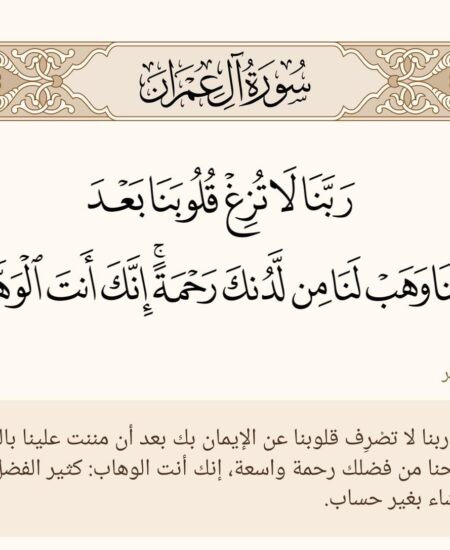 سُورَةُ آلِ عِمْرَانَ
رَبَّنَا لَا تُزِغْ قُلُوبَنَا بَعْدَ
وَهَبْ لَنَا مِن لَّدُنكَ رَحْمَةً ۚ إِنَّكَ أَنتَ
ربنا لا تصْرِف قلوبنا عن الإيمان بك بعد أن مننت علينا
من فضلك رحمة واسعة، إنك أنت الوهاب: كثير الفضل
بغير حساب.